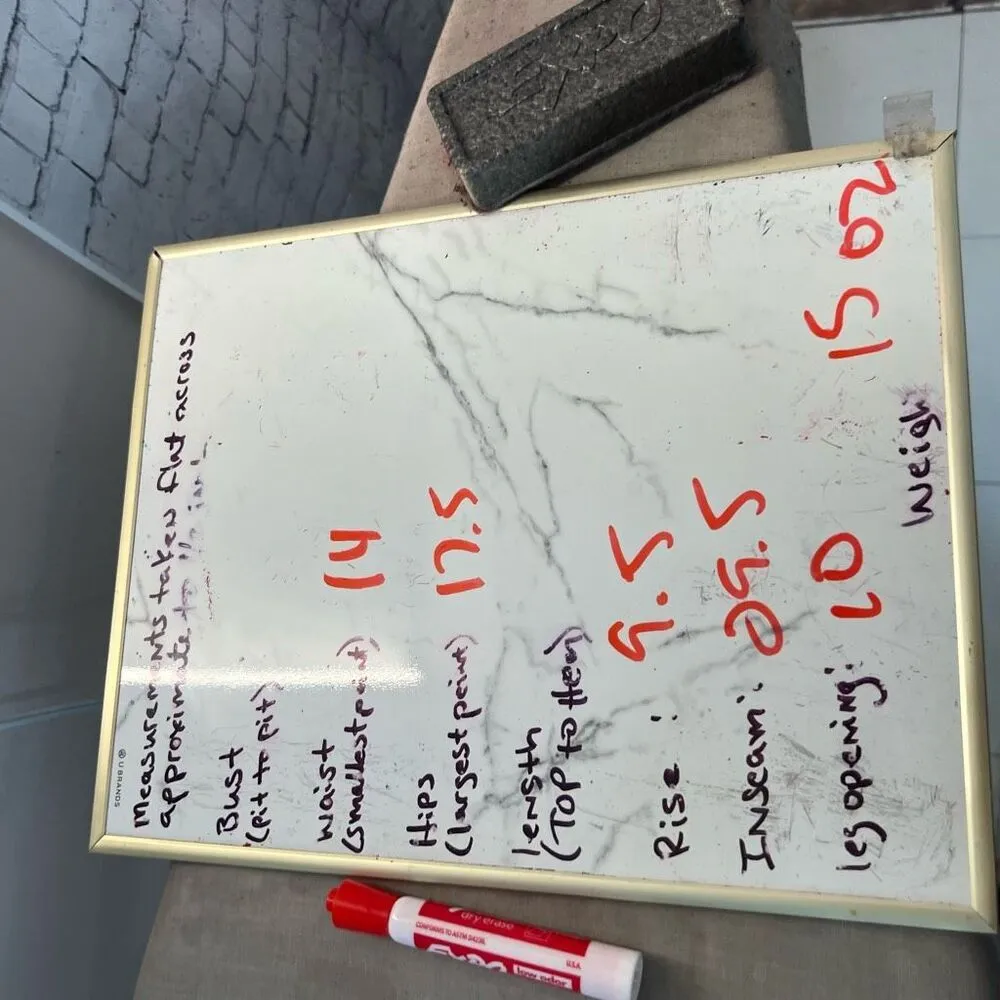 U BRANDS
Measurements taken flat across
approximate to
Bust
(pit to pit)
Waist
(smallest point) 14
Hips
(largest point) 17.5
length
(Top to Hem)
Rise: 9.5
Inseam: 29.5
leg opening: 10
15 oz
Weigh
EXPO
dry erase
CONFORMS TO ASTM D4236
EXPO
low odor
USA